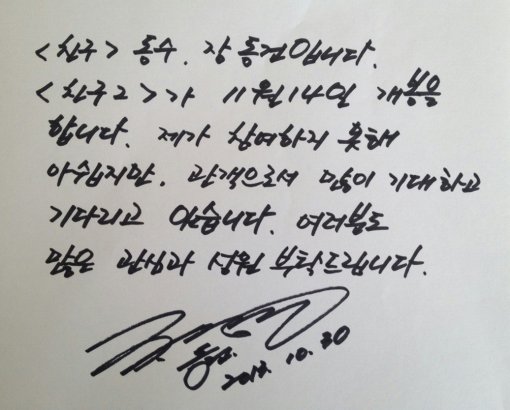 <친구> 동수. 장동건입니다.
<친구2>가 11월 14일 개봉을
합니다. 제가 참여하지 못해
아쉽지만. 관객으로서 많이 기대하고
기다리고 있습니다. 여러분도
많은 관심과 성원 부탁드립니다.
동수.
2013. 10. 30